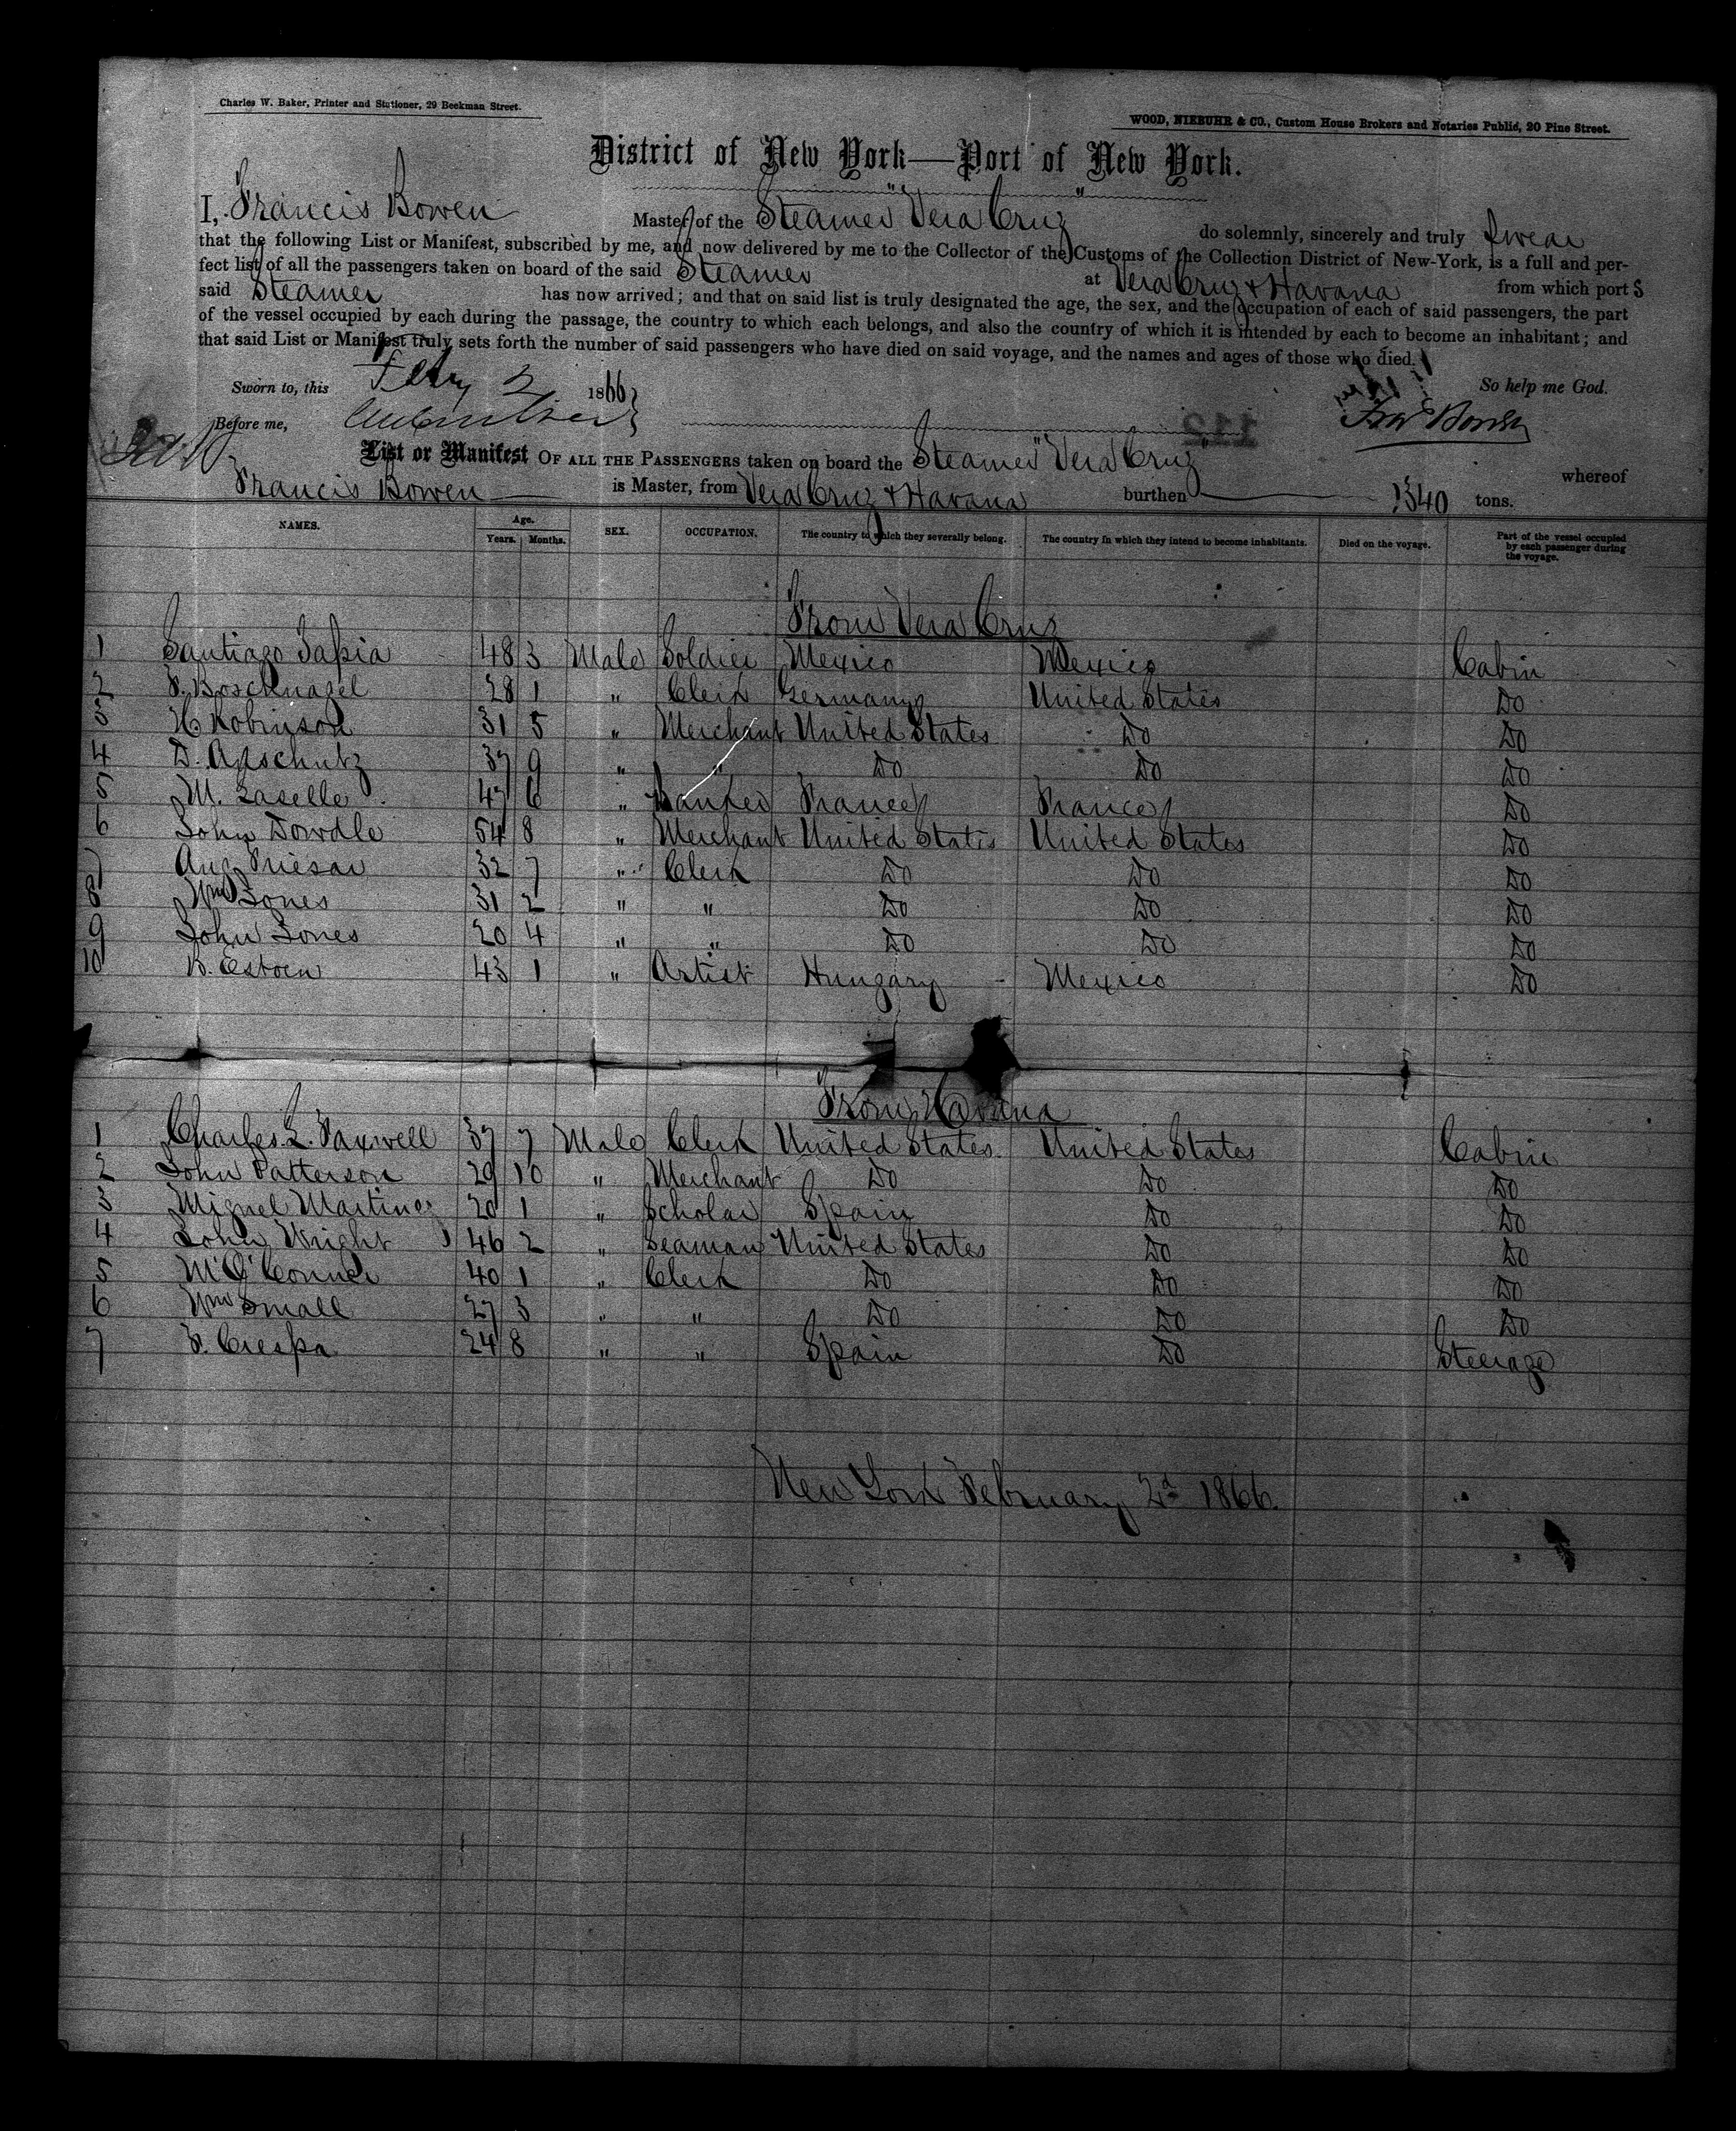 Charles W. Baker, Printer and Stationer, 29 Beekman Street.
WOOD, NIEBUHR & CO., Custom House Brokers and Notaries Public, 20 Pine Street.
District of New York—Port of New York.
I, Francis Bowen Master of the Steamer "Vera Cruz" do solemnly, sincerely and truly Swear
that the following List or Manifest, subscribed by me, and now delivered by me to the Collector of the Customs of the Collection District of New-York, is a full and per-
fect list of all the passengers taken on board of the said Steamer at Vera Cruz & Havana from which port s
said Steamer has now arrived; and that on said list is truly designated the age, the sex, and the occupation of each of said passengers, the part
of the vessel occupied by each during the passage, the country to which each belongs, and also the country of which it is intended by each to become an inhabitant; and
that said List or Manifest truly sets forth the number of said passengers who have died on said voyage, and the names and ages of those who died.
Sworn to, this Feby 2 1866 So help me God.
Before me, Fras Bowen
List or Manifest OF ALL THE PASSENGERS taken on board the Steamer "Vera Cruz" whereof
Francis Bowen is Master, from Vera Cruz & Havana burthen 1340 tons.
NAMES. Age. Years. Months. SEX. OCCUPATION. The country to which they severally belong. The country in which they intend to become inhabitants. Died on the voyage. Part of the vessel occupied by each passenger during the voyage.
From Vera Cruz
1 Santiago Tapia 48 3 Male Soldier Mexico Mexico Cabin
2 F. Boschnagel 28 1 " Clerk Germany United States Do
3 H. Robinson 31 5 " Merchant United States Do Do
4 D. Apschutz 37 9 " " Do Do Do
5 M. Laselle 47 6 " Banker France France Do
6 John Dowdle 54 8 " Merchant United States United States Do
7 Aug Friesar 32 7 " Clerk Do Do Do
8 Wm Jones 31 2 " " Do Do Do
9 John Jones 20 4 " " Do Do Do
10 B. 43 1 " Artist Hungary Mexico Do
From Havana
1 Charles L. Maxwell 37 7 Male Clerk United States United States Cabin
2 John Patterson 29 10 " Merchant Do Do Do
3 Miguel Martinez 20 1 " Scholar Spain Do Do
4 John Wright 46 2 " Seaman United States Do Do
5 M O'Conner 40 1 " Clerk Do Do Do
6 Wm Small 27 3 " " Do Do Do
7 F. Crespa 24 8 " " Spain Do Steerage
New York February 2d 1866.